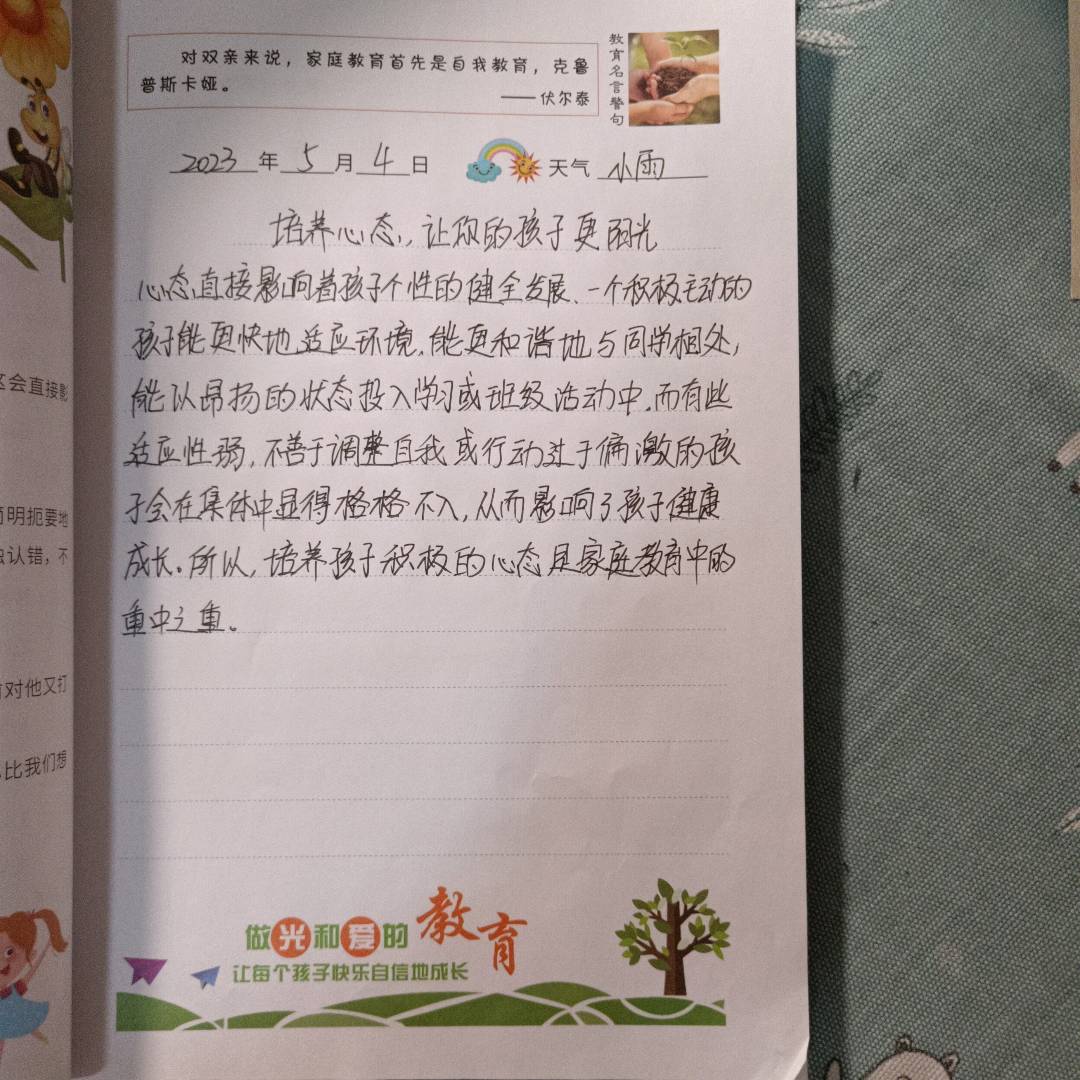 对双亲来说，家庭教育首先是自我教育，克鲁
普斯卡娅。
——伏尔泰
教育名言警句
2023年5月4日 天气 小雨
培养心态，让你的孩子更阳光
心态直接影响着孩子个性的健全发展、一个积极主动的
孩子能更快地适应环境，能更和谐地与同学相处，
能以昂扬的状态投入学习或班级活动中，而有些
适应性弱，不善于调整自我或行动过于偏激的孩
子会在集体中显得格格不入，从而影响了孩子健康
成长。所以，培养孩子积极的心态是家庭教育中的
重中之重。
做光和爱的教育
让每个孩子快乐自信地成长
会直接影
明扼要地
认错，不
对他又打
比我们想